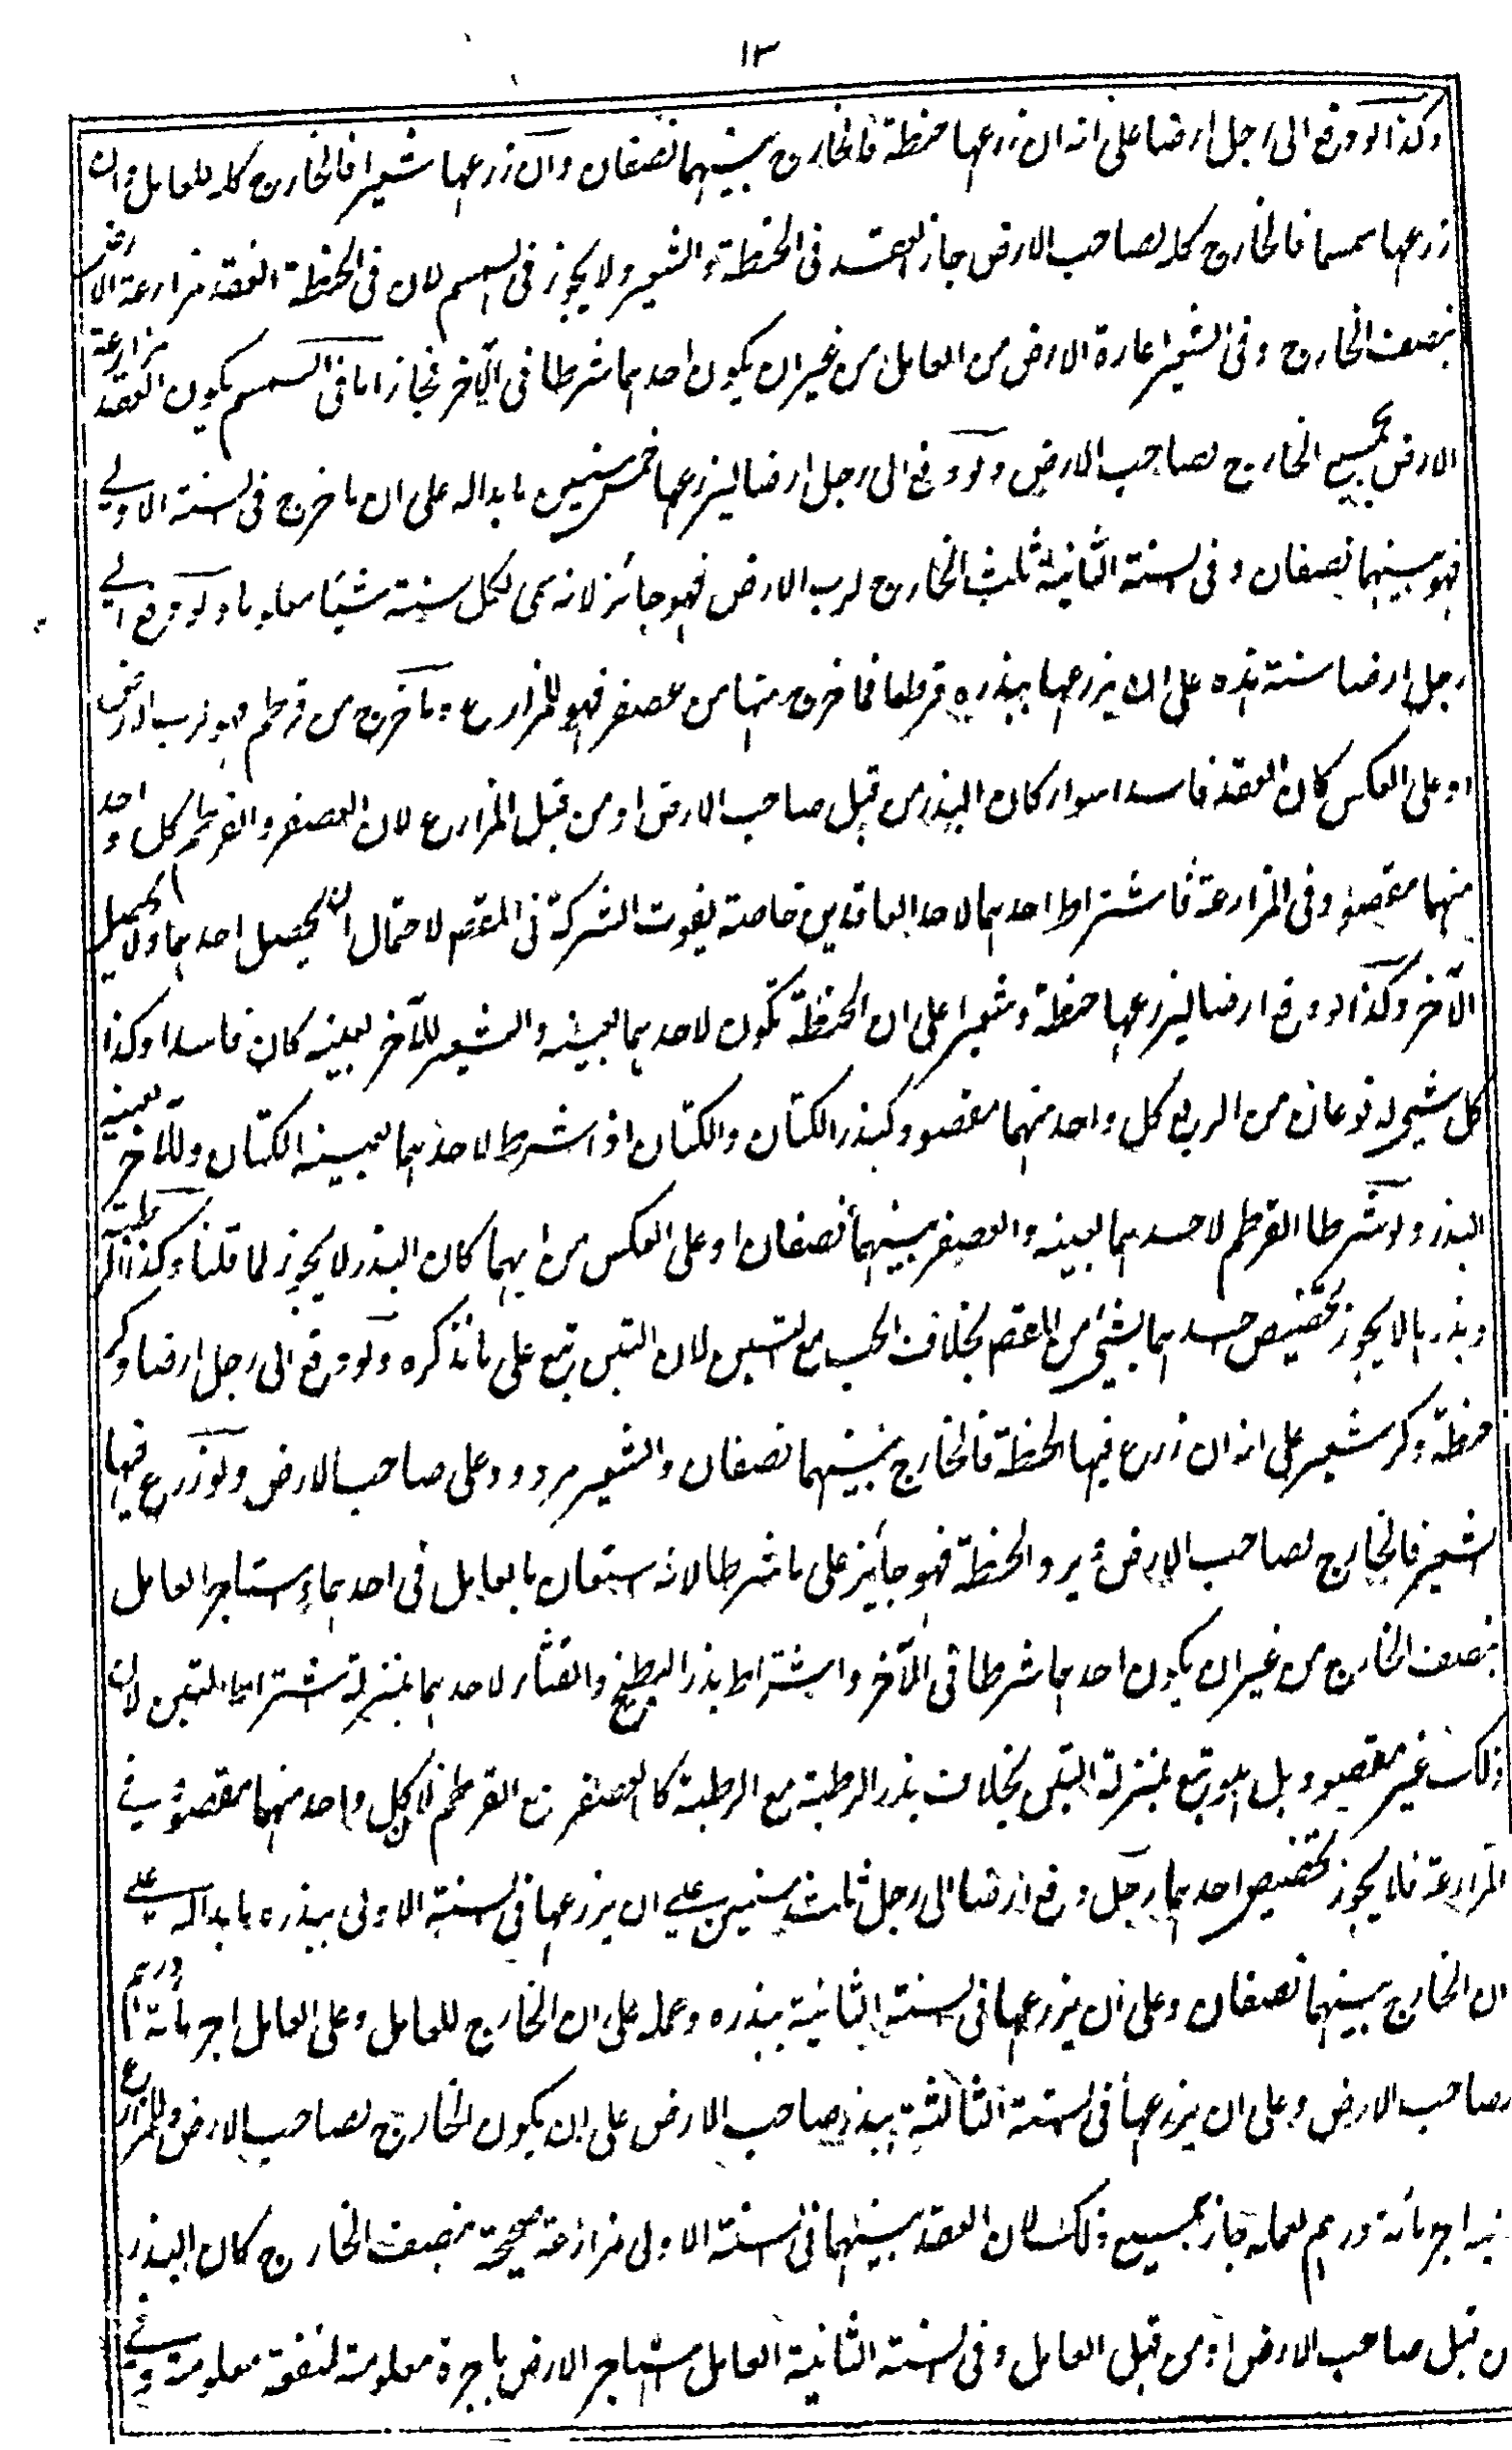 ١٣
وكذا لو دفع الى رجل ارضا على انه ان زرعها حنطة فالخارج بينهما نصفان وان زرعها شعيرا فالخارج كله للعامل وان
زرعها سمسما فالخارج كله لصاحب الارض جاز العقد فى الحنطة والشعير ولا يجوز فى السمسم لان فى الحنطة العقد مزارعة الارض
بنصف الخارج وفى الشعير اعارة الارض من العامل من غير ان يكون احدهما شرطا فى الآخر فجاز اما فى السمسم يكون العقد مزارعة
الارض بجميع الخارج لصاحب الارض ولو دفع الى رجل ارضا ليزرعها خمس سنين ما بدا له على ان ما خرج فى السنة الاولى
فهو بينهما نصفان وفى السنة الثانية ثلث الخارج لرب الارض فهو جائز لانه سمى لكل سنة شيئا معلوما ولو دفع الى
رجل ارضا سنة هذه على ان يزرعها ببذره قرطما فما خرج منها من عصفر فهو للمزارع وما خرج من قرطم فهو لرب الارض
او على العكس كان العقد فاسدا سواء كان البذر من قبل صاحب الارض او من قبل المزارع لان العصفر والقرطم كل واحد
منهما مقصود فى المزارعة فاشتراط احدهما لاحد العاقدين خاصة يفوت الشركة فى المقصود لاحتمال ان يحصل احدهما ولا يحصل
الآخر وكذا لو دفع ارضا ليزرعها حنطة وشعيرا على ان الحنطة تكون لاحدهما بعينه والشعير للآخر بعينه كان فاسدا وكذا
كل شيء له نوعان من الريع كل واحد منهما مقصود كبذر الكتان والكتان اذا شرط لاحدهما بعينه الكتان وللآخر بعينه
البذر ولو شرطا القرطم لاحدهما بعينه والعصفر بينهما نصفان او على العكس من ايهما كان البذر لا يجوز لما قلنا وكذا الرطبة
وبذرها لا يجوز تخصيص احدهما بشيء من المقصود بخلاف الحب مع التبن لان التبن تبع على ما نذكره ولو دفع الى رجل ارضا وكر
حنطة وكر شعير على انه ان زرع فيها الحنطة فالخارج بينهما نصفان والشعير مردود على صاحب الارض ولو زرع فيها
الشعير فالخارج لصاحب الارض ويرد الحنطة فهو جائز على ما شرطا لانه استعان بالعامل فى احدهما واستاجر العامل
بنصف الخارج من غير ان يكون احدهما شرطا فى الآخر واشتراط بذر البطيخ والقثاء لاحدهما بمنزلة اشتراط التبن لان
ذلك غير مقصود بل هو تبع بمنزلة التبن بخلاف بذر الرطبة مع الرطبة كالعصفر مع القرطم لان كل واحد منهما مقصود فى
المزارعة فلا يجوز تخصيص احدهما رجل دفع ارضا الى رجل ثلث سنين على ان يزرعها فى السنة الاولى ببذره ما بدا له على
ان الخارج بينهما نصفان وعلى ان يزرعها فى السنة الثانية ببذره وعمله على ان الخارج للعامل وعلى العامل اجر مائة درهم
لصاحب الارض وعلى ان يزرعها فى السنة الثالثة ببذر صاحب الارض على ان يكون الخارج لصاحب الارض وللمزارع
اجر مائة درهم لعمله جاز جميع ذلك لان العقد بينهما فى السنة الاولى مزارعة صحيحة بنصف الخارج كان البذر
من قبل صاحب الارض او من قبل العامل وفى السنة الثانية العامل استاجر الارض باجرة معلومة لمنفعة معلومة وفى